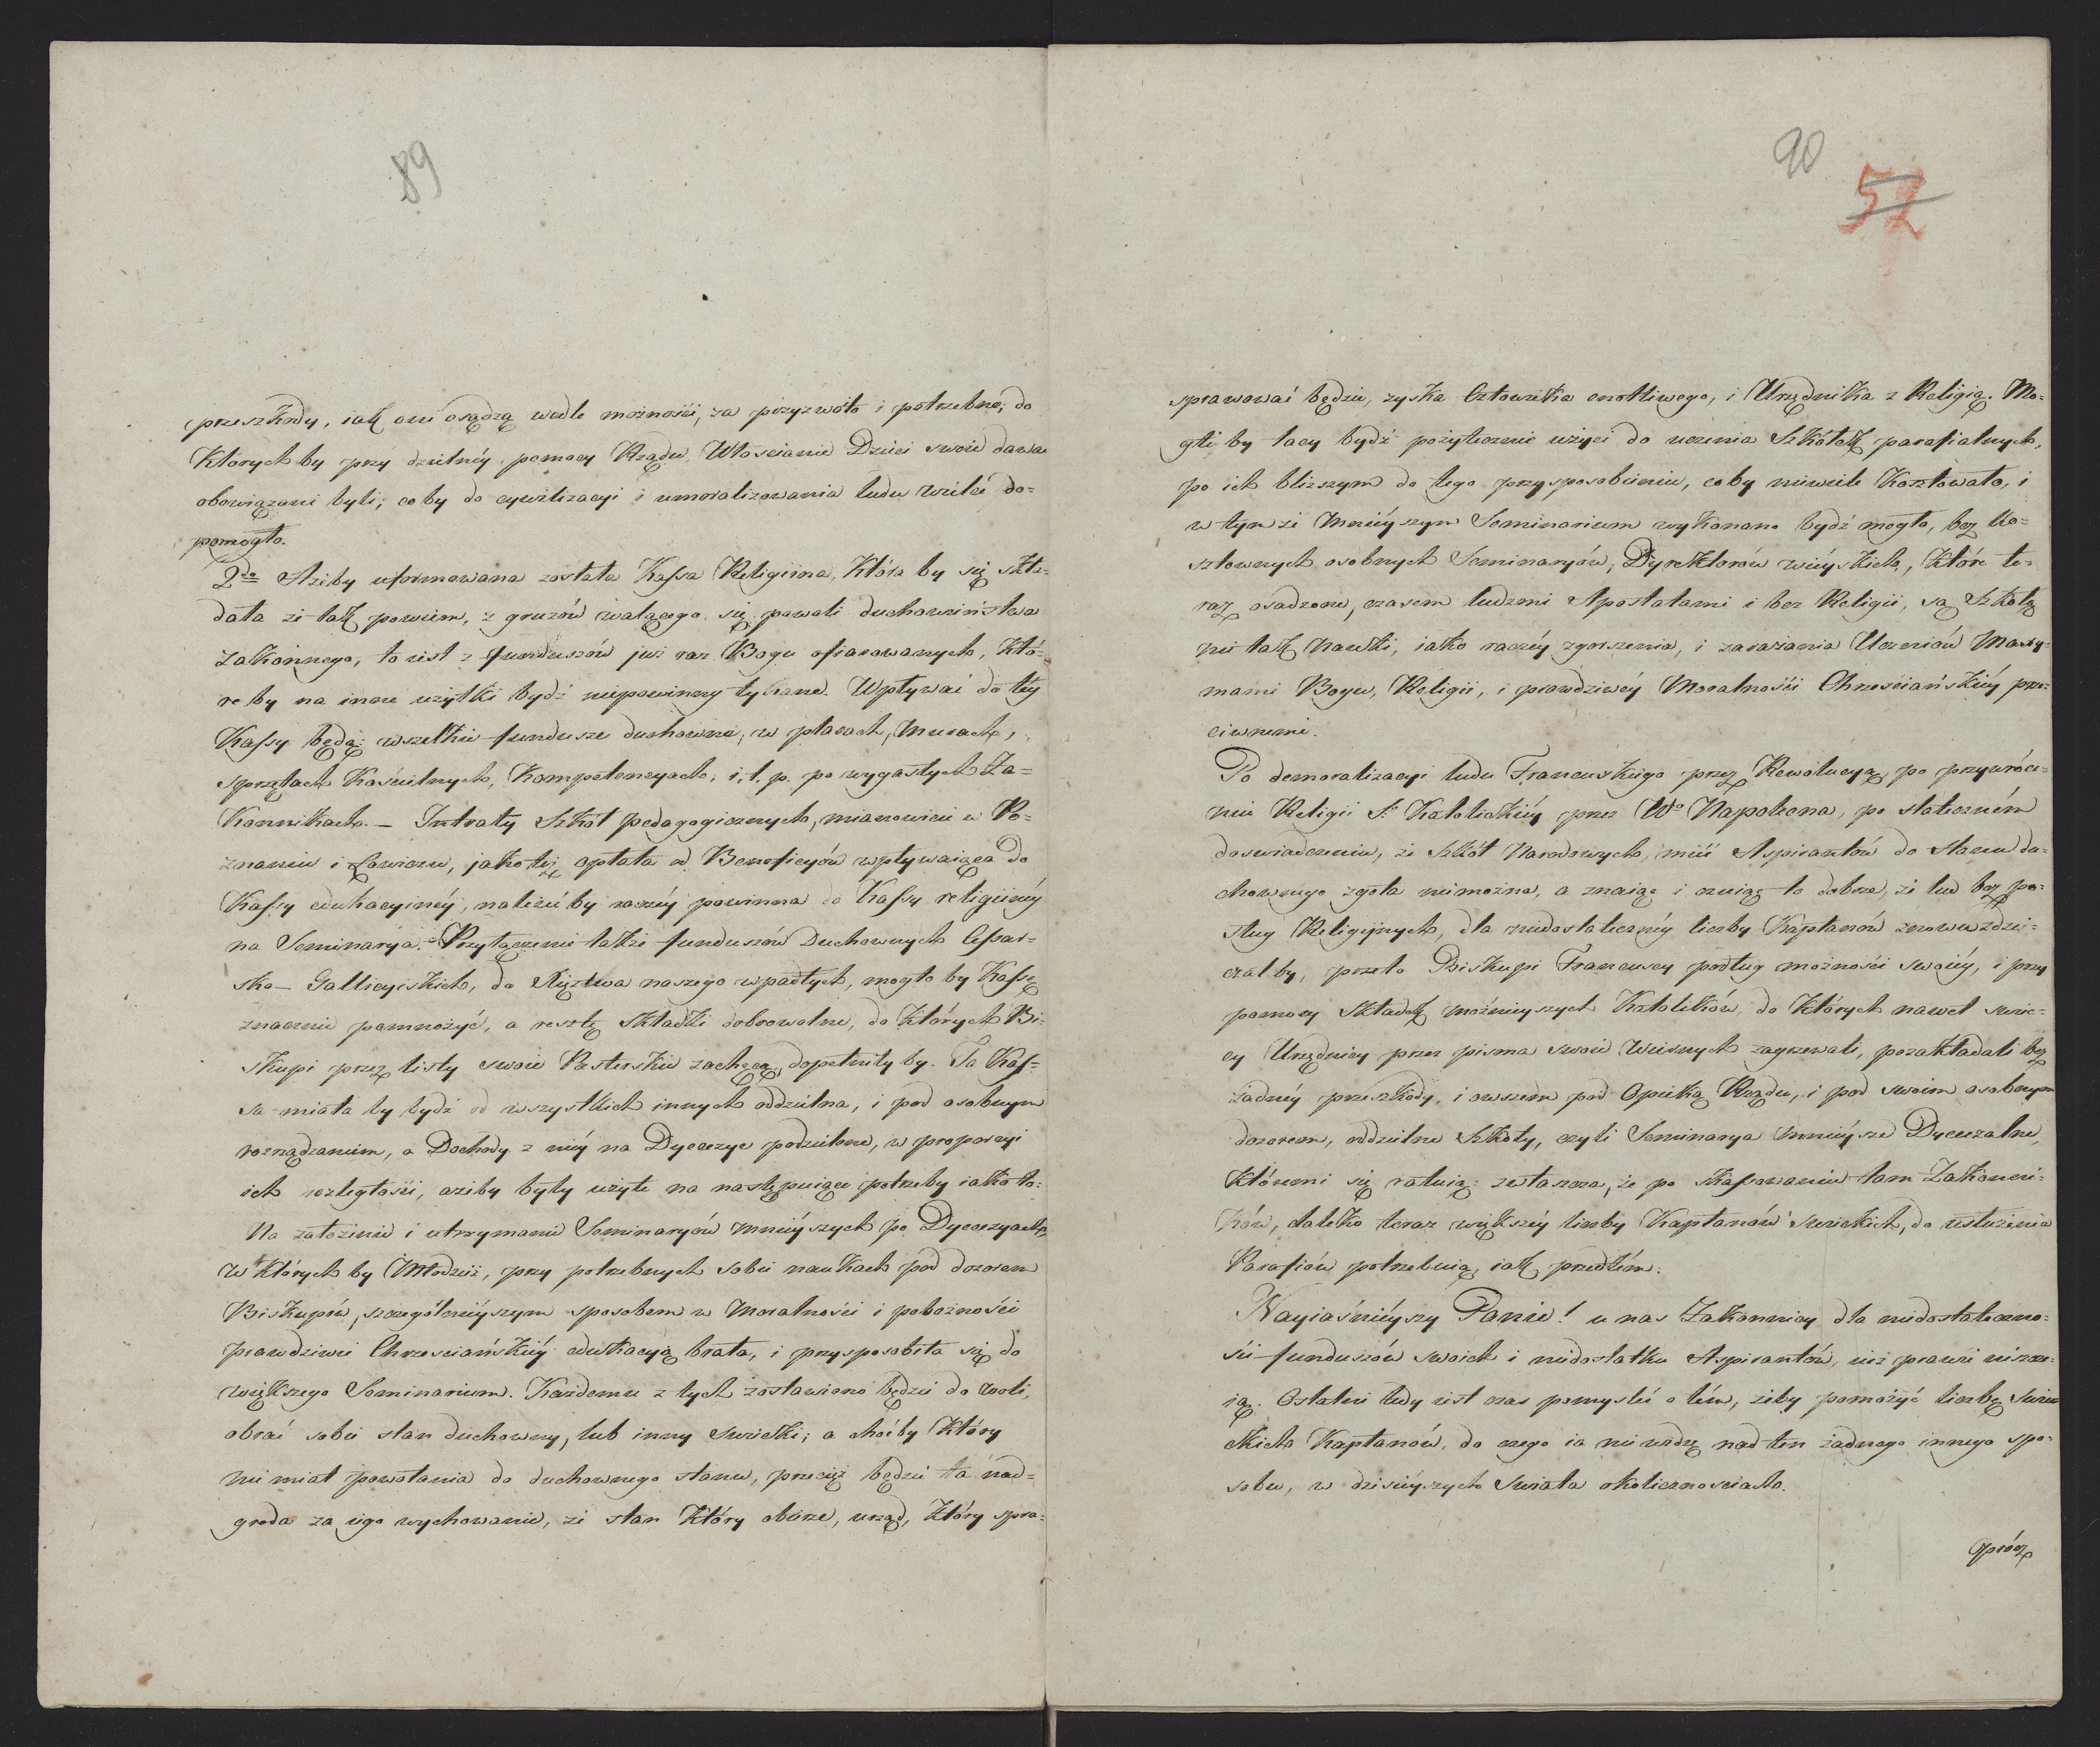 89
przeszkody, iak oni osądzą wedle możności, za przyzwoito i potrzebne; do
Których by przy dzielnéy pomocy Rządu, Włościanie Dzieci swoie dawać
obowiązani byli; co by do cywilizacyi i umoralizowania ludu wiele do=
pomogło.
2do Ażeby uformowana została Kassa Religiina, Która by się skła=
dała że tak powiem, z gruzów walącego się powoli duchowieństwa
zakonnego, to iest z funduszów już raz Bogu ofiarowanych, Któ=
re by na inne użytki bydź niepowinny tykane. Wpływać do tey
Kassy będą: wszelkie fundusze duchowne, w placach, Murach,
sprzętach Kościelnych, Kompetencyach, i, t. p. po wygasłych Za=
Konnikach. – Intraty Szkół pedagogicznych, mianowicie w Po=
znaniu i Łowiczu, jakoteż opłata od Beneficyów wpływaiąca do
Kassy edukacyinéy, należéć by raczéy powinna do Kassy religiinéy
na Seminarya. Przyłączenie także funduszów Duchownych Cessar=
sko – Gallicyiskich, do Xięztwa naszego wpadłych, mogło by Kassę
znacznie pomnożyć, a resztę Składki dobrowolne, do Których Bi=
skupi przez listy swoie Pasterskie zachęcą, dopełniły by. Ta Kas=
sa miała by bydź od wszystkich innych oddzielna, i pod osobnym
rozrządzaniem, a Dochody z niéy na Dyecezye podzielone, w proporcyi
ich rozległości, ażeby były użyte na następuiące potrzeby iakoto:
Na założenie i utrzymanie Seminaryów mnieyszych po Dyecezyach,
w Których by Młodzież, przy potrzebnych sobie naukach pod dozorem
Biskupów, szczególnieyszym sposobem w Moralności i pobożności
prawdziwie Chrześciańskiéy edukacyą brała, i przysposobiła się do
większego Seminarium. Każdemu z tych zostawiono będzie do woli,
obrać sobie stan duchowny, lub inny świecki; a choćby Który
nie miał powołania do duchownego stanu, przecież będzie ta nad=
groda za iego wychowanie, że stan Który obierze, urząd, Który spra=
90
52
sprawować będzie, zyska Człowieka cnotliwego, i Urzędnika z Religią. Mo=
gli by tacy bydź pożytecznie użyci do uczenia Szkółek parafialnych,
po ich bliższym do tego przysposobieniu, co by niewiele Kosztowało, i
w tymże Mnieyszym Seminarium wykonano bydź mogło, bez Ko=
sztownych osobnych Seminaryów, Dyrektorów wieyskich, które te=
raz osadzone, czasem ludźmi Apostatami i bez Religii, są Szkołą
nie tak Nauki, iako raczéy zgorszenia, i zarażania Uczniów Maxy=
mami Bogu, Religii, i prawdziwéy Moralności Chrześciańskiéy prze=
ciwnemi.
Po demoralizacyi ludu Francuskiego przez Rewolucyą, po przywróce=
niu Religii S. Katolickiéy przez Wo Napoleona, po stateczném
doświadczeniu, że Szkół Narodowych, mieć Aspirantów do stanu du=
chownego zgoła niemożna, a znaiąc i czuiąc to dobrze, że lud bez po=
sług Religijnych, dla niedostatecznéy liczby Kapłanów znowu zdzi=
czał by, przeto Biskupi Francuscy podług możności swoiéy, i przy
pomocy Składek możnieyszych Katolików, do których nawet świec=
cy Urzędnicy przez pisma swoie Wiernych zagrzewali, pozakładali bez
żadnéy przeszkody, i owszem pod Opieką Rządu, i pod swoim osobnym
dozorem, oddzielne Szkoły, czyli Seminarya mnieysze Dyecezalne,
Któremi się ratuią: zwłaszcza, że po Skassowaniu tam Zakonni=
Ków, daleko teraz większéy liczby Kapłanów Swieckich, do usłużenia
Parafiów potrzebuią, iak przedtém.
Nayiaśnieyszy Panie! u nas Zakonnicy dla niedostateczno=
ści funduszów swoich i niedostatku Aspirantów, iuż prawie niszcze=
ią. Ostatni tedy iest czas pomyśleć o tém, żeby pomnożyć liczbę Swie=
ckich Kapłanów, do czego ia nie widzę nad ten żadnego innego spo=
sobu, w dzisieyszych świata okolicznościach.
Oprócz